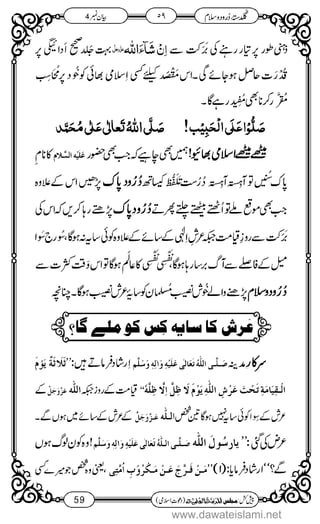 بیان نمبر 4 ۵۹ گلدستۂ دُرود و سلام
ذِہنی طور پر تیار رہنے کی بَرَکت سے اِنْ شَآءَاللہ عَزَّوَجَلَّ بہت جَلد صحیح اَدائیگی پر
قُدرَت حاصل ہوجائے گی۔ اس مَقْصَد کیلئے کسی اِسلامی بھائی کو خود پر مُحاسِب
مُقَرَّر کرنا بھی مُفید رہے گا۔
صَلُّوْا عَلَی الْحَبِیْب! صَلَّی اللہُ تَعَالٰی عَلٰی مُحَمَّد
میٹھے میٹھے اسلامی بھائیو! ہمیں بھی چاہیے کہ جب بھی حضور عَلَیْہِ السَّلَام کا نامِ
پاک سُنیں تو آہستہ آہستہ دُرست تَلَفُّظ کیساتھ دُرُودِ پاک پڑھیں اس کے علاوہ
بھی جب موقع ملے تو اُٹھتے بیٹھتے چلتے پھرتے دُرُودِ پاک پڑھتے رہا کریں کہ اس کی
بَرَکت سے روزِ قیامت جبکہ عرشِ الٰہی کے سائے کے علاوہ کوئی سایہ نہ ہوگا، سُورج سَوا
میل کے فاصلے سے آگ برسا رہا ہوگا، نَفْسی نَفْسی کا عالَم ہوگا تو اس وقت کثرت سے
دُرُود و سلام پڑھنے والے خُوش نصیب مُسلمان کو سایۂ عرش نصیب ہوگا۔ چنانچہ
عَرش کا سایہ کِس کو ملے گا؟
سرکارِ مدینہ صَلَّی اللہُ تَعَالٰی عَلَیْہِ وَاٰلِہٖ وَسَلَّم اِرشاد فرماتے ہیں: ’’ثَلَاثَۃٌ یَوْمَ
الْقِیَامَۃِ تَحْتَ عَرْشِ اللہِ یَوْمَ لَا ظِلَّ اِلَّا ظِلُّہٗ‘‘ قیامت کے روز جبکہ اللہ عَزَّوَجَلَّ کے
عرش کے سوا کوئی سایہ نہیں ہوگا تین شخص اللہ عَزَّوَجَلَّ کے عرش کے سائے میں ہوں گے۔
عرض کی گئی: ’’یارسُولَ اللہ صَلَّی اللہُ تَعَالٰی عَلَیْہِ وَاٰلِہٖ وَسَلَّم! وہ کون لوگ ہوں
گے؟‘‘ ارشاد فرمایا: (۱) ’’مَنْ فَرَّجَ عَنْ مَکْرُوْبٍ اُمَّتِیْ، یعنی وہ شخص جو میرے کسی
59 پیش کش: مجلس المدینۃ العلمیۃ (دعوتِ اسلامی)
www.dawateislami.net